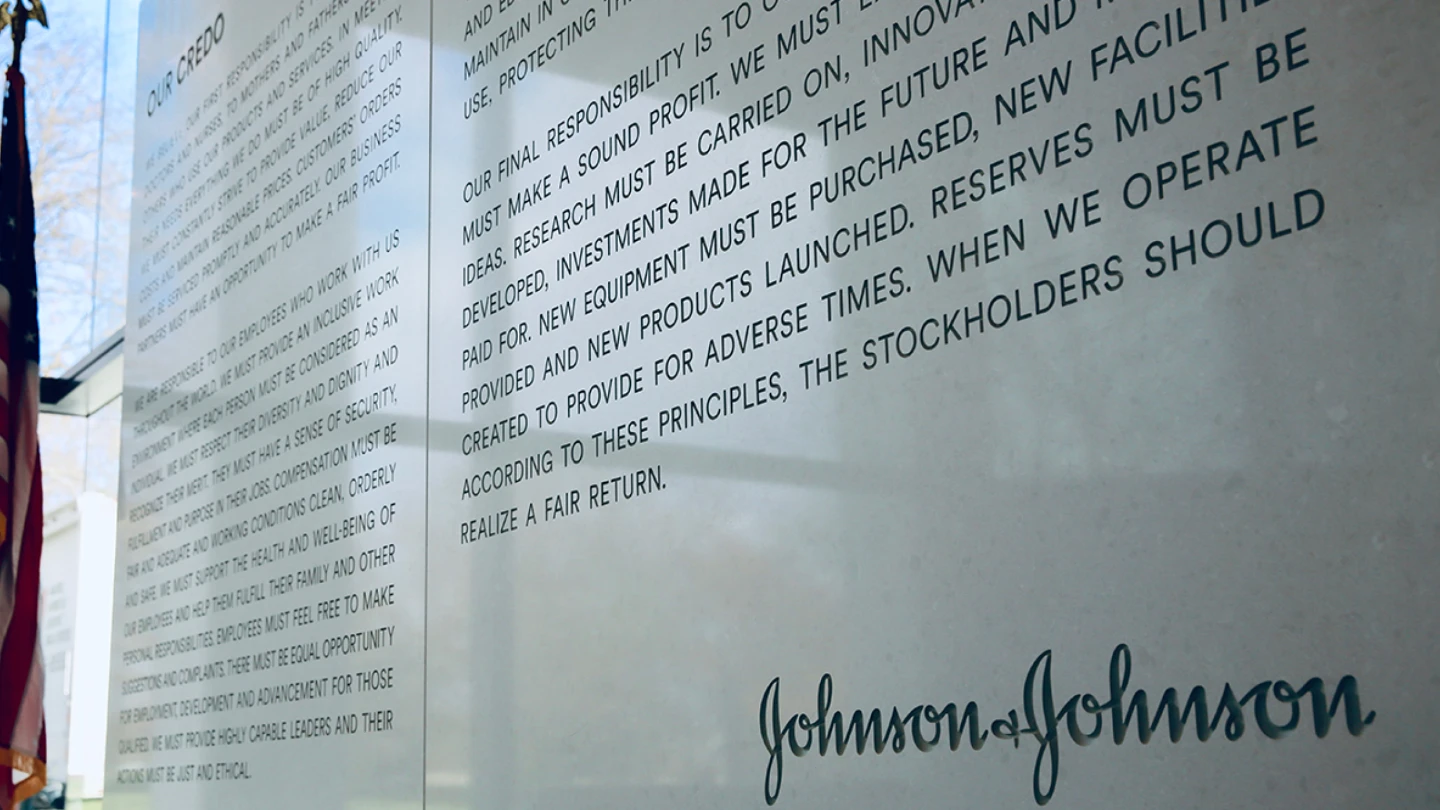 OUR CREDO
WE BELIEVE OUR FIRST RESPONSIBILITY IS
DOCTORS AND NURSES, TO MOTHERS AND FATHERS
OTHERS WHO USE OUR PRODUCTS AND SERVICES. IN MEETING
THEIR NEEDS EVERYTHING WE DO MUST BE OF HIGH QUALITY.
WE MUST CONSTANTLY STRIVE TO PROVIDE VALUE, REDUCE OUR
COSTS AND MAINTAIN REASONABLE PRICES. CUSTOMERS' ORDERS
MUST BE SERVICED PROMPTLY AND ACCURATELY. OUR BUSINESS
PARTNERS MUST HAVE AN OPPORTUNITY TO MAKE A FAIR PROFIT.
WE ARE RESPONSIBLE TO OUR EMPLOYEES WHO WORK WITH US
THROUGHOUT THE WORLD. WE MUST PROVIDE AN INCLUSIVE WORK
ENVIRONMENT WHERE EACH PERSON MUST BE CONSIDERED AS AN
INDIVIDUAL. WE MUST RESPECT THEIR DIVERSITY AND DIGNITY AND
RECOGNIZE THEIR MERIT. THEY MUST HAVE A SENSE OF SECURITY,
FULFILLMENT AND PURPOSE IN THEIR JOBS. COMPENSATION MUST BE
FAIR AND ADEQUATE AND WORKING CONDITIONS CLEAN, ORDERLY
AND SAFE. WE MUST SUPPORT THE HEALTH AND WELL-BEING OF
OUR EMPLOYEES AND HELP THEM FULFILL THEIR FAMILY AND OTHER
PERSONAL RESPONSIBILITIES. EMPLOYEES MUST FEEL FREE TO MAKE
SUGGESTIONS AND COMPLAINTS. THERE MUST BE EQUAL OPPORTUNITY
FOR EMPLOYMENT, DEVELOPMENT AND ADVANCEMENT FOR THOSE
QUALIFIED. WE MUST PROVIDE HIGHLY CAPABLE LEADERS AND THEIR
ACTIONS MUST BE JUST AND ETHICAL.
AND
MAINTAIN IN
USE, PROTECTING
OUR FINAL RESPONSIBILITY IS TO
MUST MAKE A SOUND PROFIT. WE MUST
IDEAS. RESEARCH MUST BE CARRIED ON,
DEVELOPED, INVESTMENTS MADE FOR THE FUTURE AND
PAID FOR. NEW EQUIPMENT MUST BE PURCHASED, NEW FACILITIE
PROVIDED AND NEW PRODUCTS LAUNCHED. RESERVES MUST BE
CREATED TO PROVIDE FOR ADVERSE TIMES. WHEN WE OPERATE
ACCORDING TO THESE PRINCIPLES, THE STOCKHOLDERS SHOULD
REALIZE A FAIR RETURN.
Johnson&Johnson